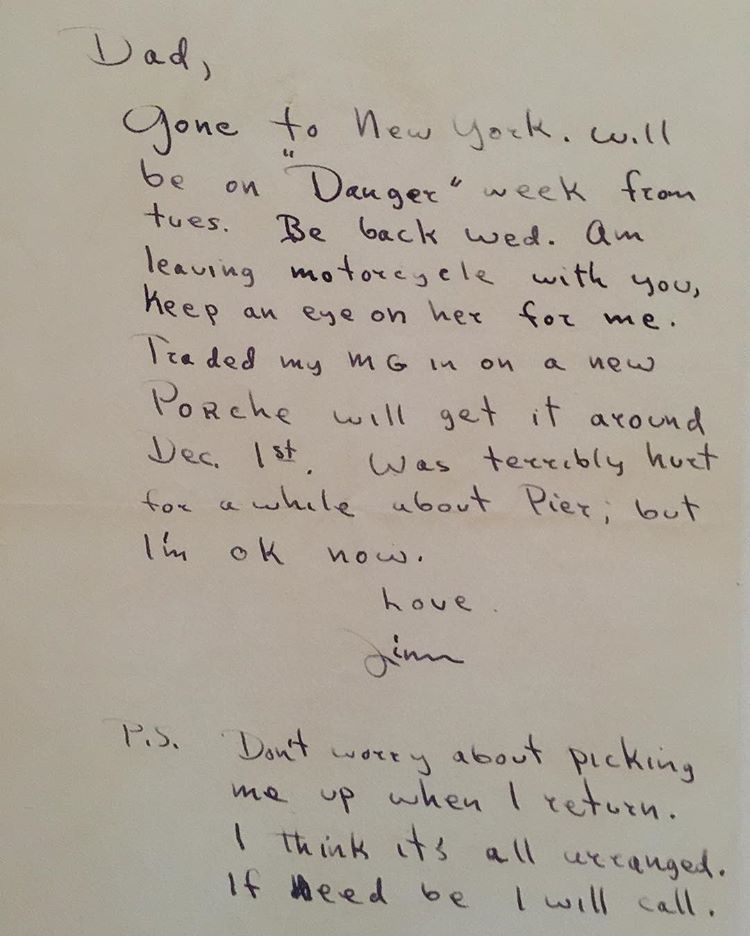 Dad,
Gone to New York. will
be on "Danger" week from
tues. Be back wed. Am
leaving motorcycle with you,
keep an eye on her for me.
Traded my MG in on a new
Porche will get it around
Dec. 1st. Was terribly hurt
for a while about Pier; but
I'm ok now.
Love.
Jim
P.S. Don't worry about picking
me up when I return.
I think it's all arranged.
If need be I will call.